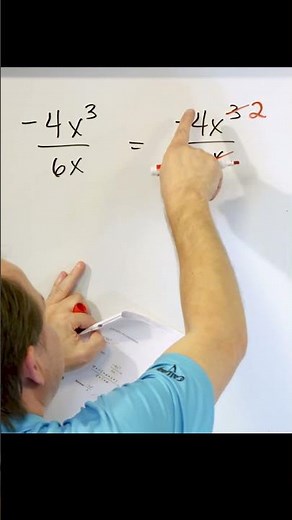 -4x³ / 6x = -4x³ 2 / x